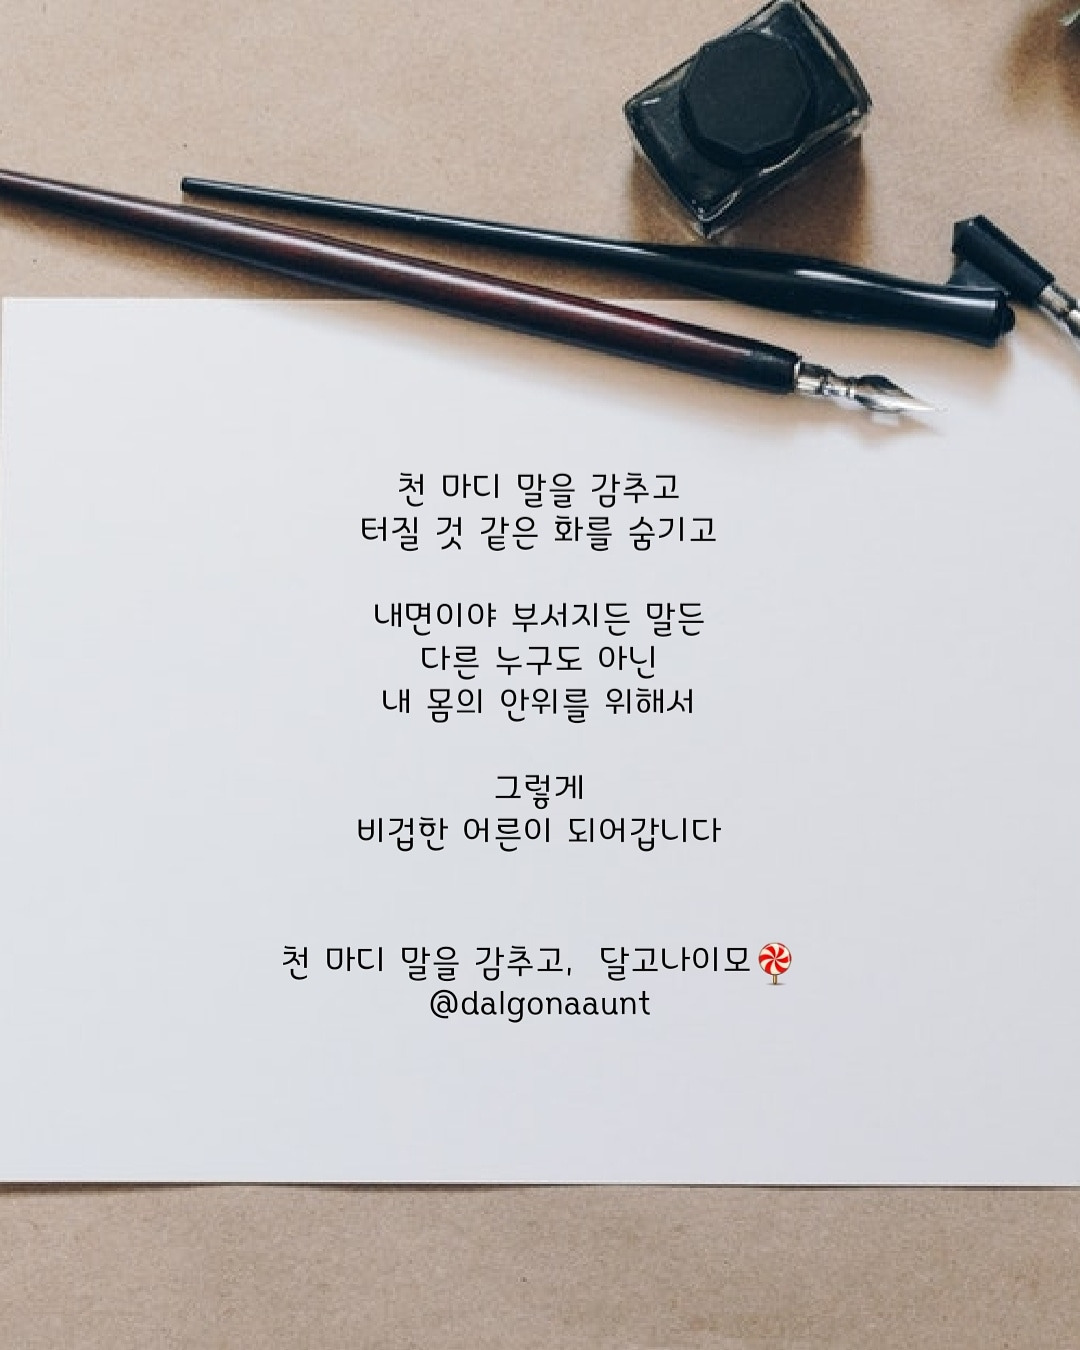 천 마디 말을 감추고
터질 것 같은 화를 숨기고
내면이야 부서지든 말든
다른 누구도 아닌
내 몸의 안위를 위해서
그렇게
비겁한 어른이 되어갑니다
천 마디 말을 감추고, 달고나이모🍭
@dalgonaaunt